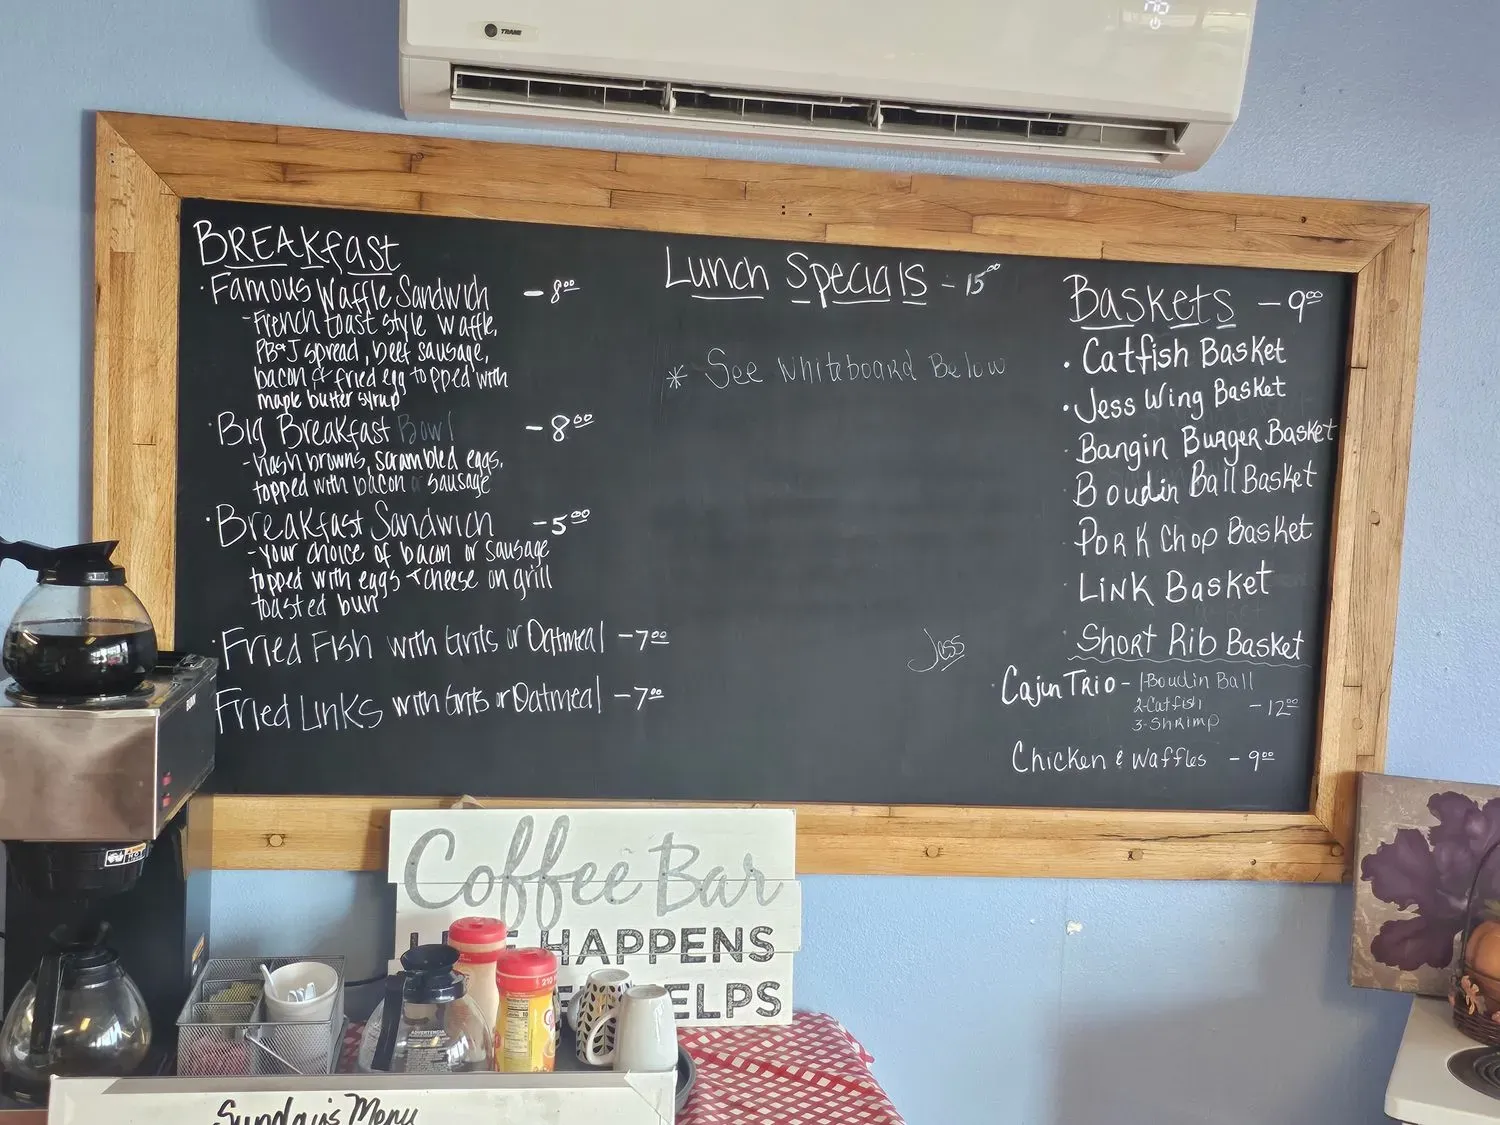 TRANE
BREAKfast
· Famous Waffle Sandwich - 8⁰⁰
- French toast style waffle,
PB&J spread, beef sausage,
bacon & fried egg topped with
maple butter syrup
· Big Breakfast Bowl - 8⁰⁰
- hash browns, scrambled eggs,
topped with bacon or sausage
· Breakfast Sandwich - 5⁰⁰
- your choice of bacon or sausage
topped with eggs + cheese on grill
toasted bun
· Fried Fish with Grits or Oatmeal - 7⁰⁰
Fried Links with Grits or Oatmeal - 7⁰⁰
Lunch Specials - 15⁰⁰
* See Whiteboard Below
Jess
Baskets - 9⁰⁰
· Catfish Basket
· Jess Wing Basket
Bangin Burger Basket
Boudin Ball Basket
Pork Chop Basket
Link Basket
Short Rib Basket
Cajun Trio - 1-Boudin Ball
2-Catfish - 12⁰⁰
3-Shrimp
Chicken & Waffles - 9⁰⁰
Coffee Bar
HAPPENS
ELPS
BUNN
HOT
ADVERTENCIA
Sunday's Menu